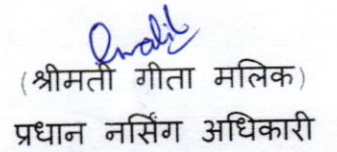 (श्रीमती गीता मलिक)
प्रधान नर्सिंग अधिकारी